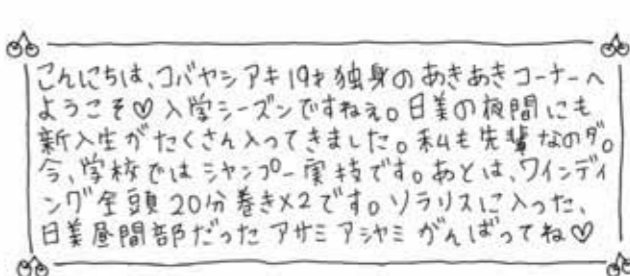 こんにちは、コバヤシアキ19才独身のあきあきコーナーへ
ようこそ♡入学シーズンですねぇ。日美の夜間にも
新入生がたくさん入ってきました。私も先輩なのダ。
今、学校ではシャンプー実技です。あとは、ワインディ
ング全頭20分巻き×2です。ソラリスに入った、
日美昼間部だったアサミアシヤミがんばってね♡